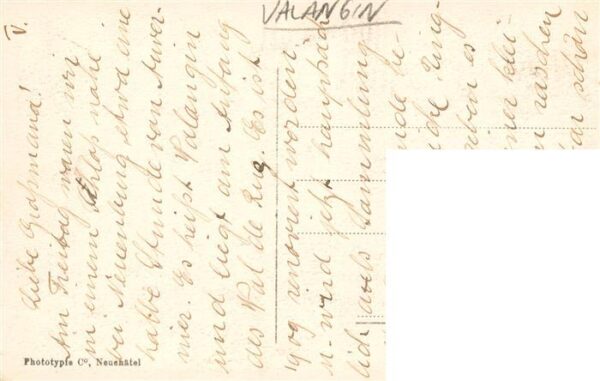 VALANGIN
V.
Liebe Großmama!
Am Freitag waren wir
in einem Schloß nahe
bei Neuenburg, etwa eine
halbe Stunde von Auver-
nier. Es heißt Valangin
und liegt am Anfang
des Val de Ruz. Es ist
1909 renoviert worden
u. wird jetzt hauptsäch
lich als
ammlung
nde be-
ben es
ner klei-
raschen
ar schön
Phototypie Co, Neuchâtel